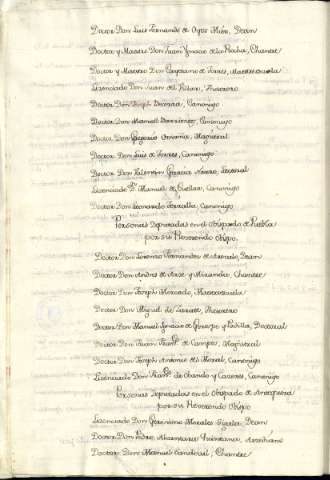 Doctor Don Luis Fernando de Oyos Mier, Dean
Doctor y Maestro Don Juan Ygnacio de la Rocha, Chantre
Doctor y Maestro Don Cayetano de Torres, Maestrescuela
Licenciado Don Juan del Villar, Thesorero
Doctor Don Joseph Becerra, Canonigo
Doctor Don Manuel Barrientos, Canonigo
Doctor Don Gregorio Omaña, Magistral
Doctor Don Luis de Torres, Canonigo
Doctor Don Valentin Garcia Narro, Lectoral
Licenciado Dn. Manuel de Cuellar, Canonigo
Doctor Don Leonardo Terralla, Canonigo
Personas Deputadas en el Obispado de Puebla
por su Reverendo Obispo.
Doctor Don Lorenzo Fernandez de Arevalo, Dean
Doctor Don Andres de Arze y Miranda, Chantre
Doctor Don Joseph Mercado, Maestrescuela
Doctor Don Miguel de Zarate, Thesorero
Doctor Don Manuel Ignacio de Gorospe y Padilla, Doctoral
Doctor Don Juan Franco. de Campos, Magistral
Doctor Don Joseph Antonio del Moral, Canonigo
Licenciado Don Franco. de obando y Caceres, Canonigo
Personas Deputadas en el Obispado de Antequera
por su Reverendo Obispo
Licenciado Don Geronimo Morales Sigala, Dean
Doctor Don Pedro Alcantara Quintana, Arcediano
Doctor Don Manuel Sandoval, Chantre